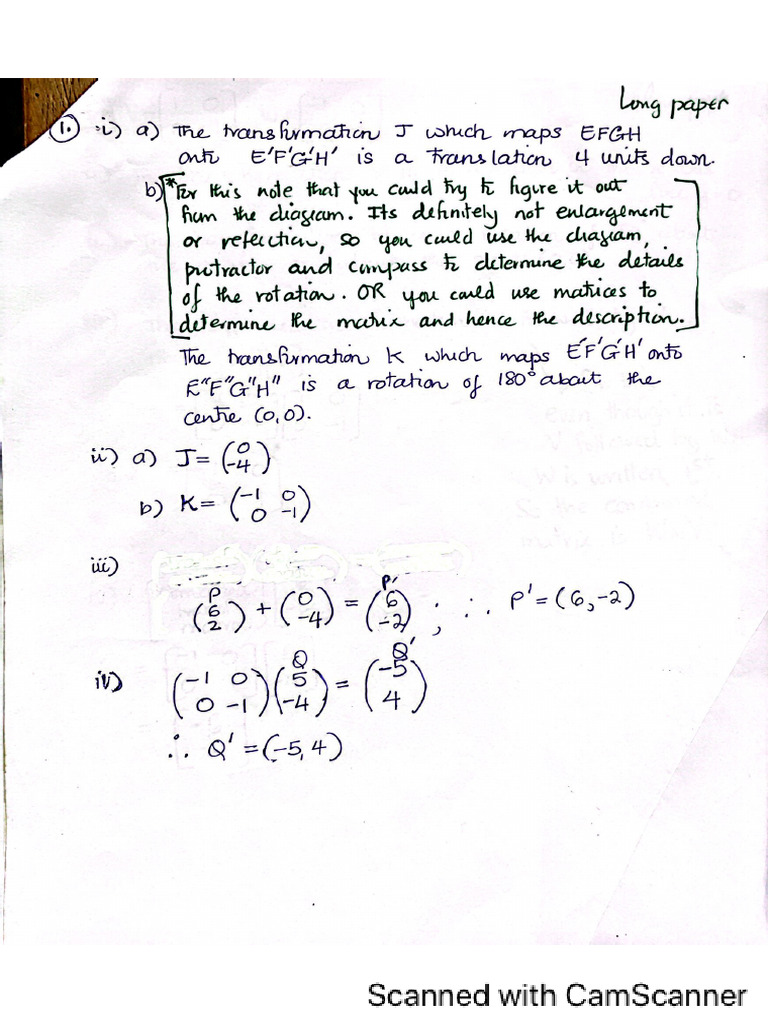 Long paper
1. i) a) The transformation J which maps EFGH
onto E'F'G'H' is a translation 4 units down.
b) [*For this note that you could try to figure it out
from the diagram. Its definitely not enlargement
or reflection, so you could use the diagram,
protractor and compass to determine the details
of the rotation. OR you could use matrices to
determine the matrix and hence the description.]
The transformation K which maps E'F'G'H' onto
E"F"G"H" is a rotation of 180° about the
centre (0,0).
ii) a) J = (0 -4)
b) K = (-1 0 0 -1)
iii)
P P'
(6 2) + (0 -4) = (6 -2) ; ∴ P' = (6,-2)
Q Q'
iv) (-1 0 0 -1)(5 -4) = (-5 4)
∴ Q' = (-5,4)
Scanned with CamScanner